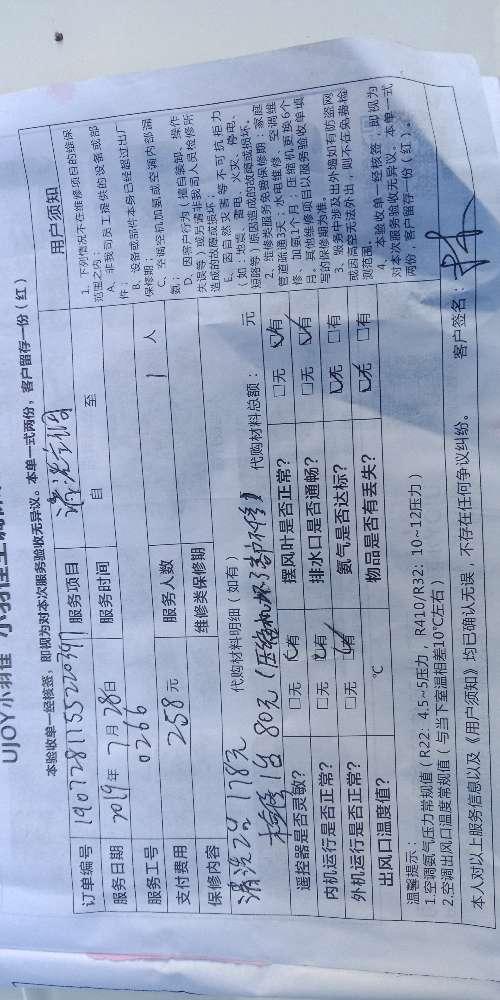 UJOY小羽佳
本验收单一经核签，即视为对本次服务验收无异议。本单一式两份，客户留存一份（红）
订单编号 服务项目 清洗空调
服务日期 2019年7月28日 服务时间 自 至
服务工号 0266
支付费用 258元 服务人数 1 人
保修内容 维修类保修期
清洗2台 178元 代购材料明细（如有） 代购材料总额： 元
检修1台 80元（压缩机坏了却不修）
遥控器是否灵敏？ □无 □有 摆风叶是否正常？ □无 □有
内机运行是否正常？ □无 □有 排水口是否通畅？ □无 □有
外机运行是否正常？ □无 □有 氨气是否达标？ □无 □有
出风口温度值？ ℃ 物品是否有丢失？ □无 □有
用户须知
1、下例情况不在维修项目的维保
范围之内：
A、非我司员工提供的设备或部
件；
B、设备或部件本身已经超过出厂
保修期；
C、空调空机加氨或空调内部漏
氨；
D、因客户行为（擅自装卸、操作
失误等）或另请非我司人员检修所
造成的故障或损坏。
E、因自然灾害等不可抗拒力
（如：地震、雷电、火灾、停电、
短路等）原因造成的故障或损坏。
2、维修类服务免费保修期：家庭
管道疏通3天；水电维修、空调维
修、加氨1个月；压缩机更换6个
月。其他维修项目以服务验收单填
写的保修期为准。
3、服务中涉及出外墙如有防盗网
或因高空无法外出，则不在免费检
测范围。
4、本验收单一经核签，即视为
对本次服务验收无异议。本单一式
两份，客户留存一份（红）。
温馨提示：
1.空调氨气压力常规值（R22：4.5~5压力，R410/R32：10~12压力）
2.空调出风口温度常规值（与当下室温相差10℃左右）
本人对以上服务信息以及《用户须知》均已确认无误，不存在任何争议纠纷。 客户签名：